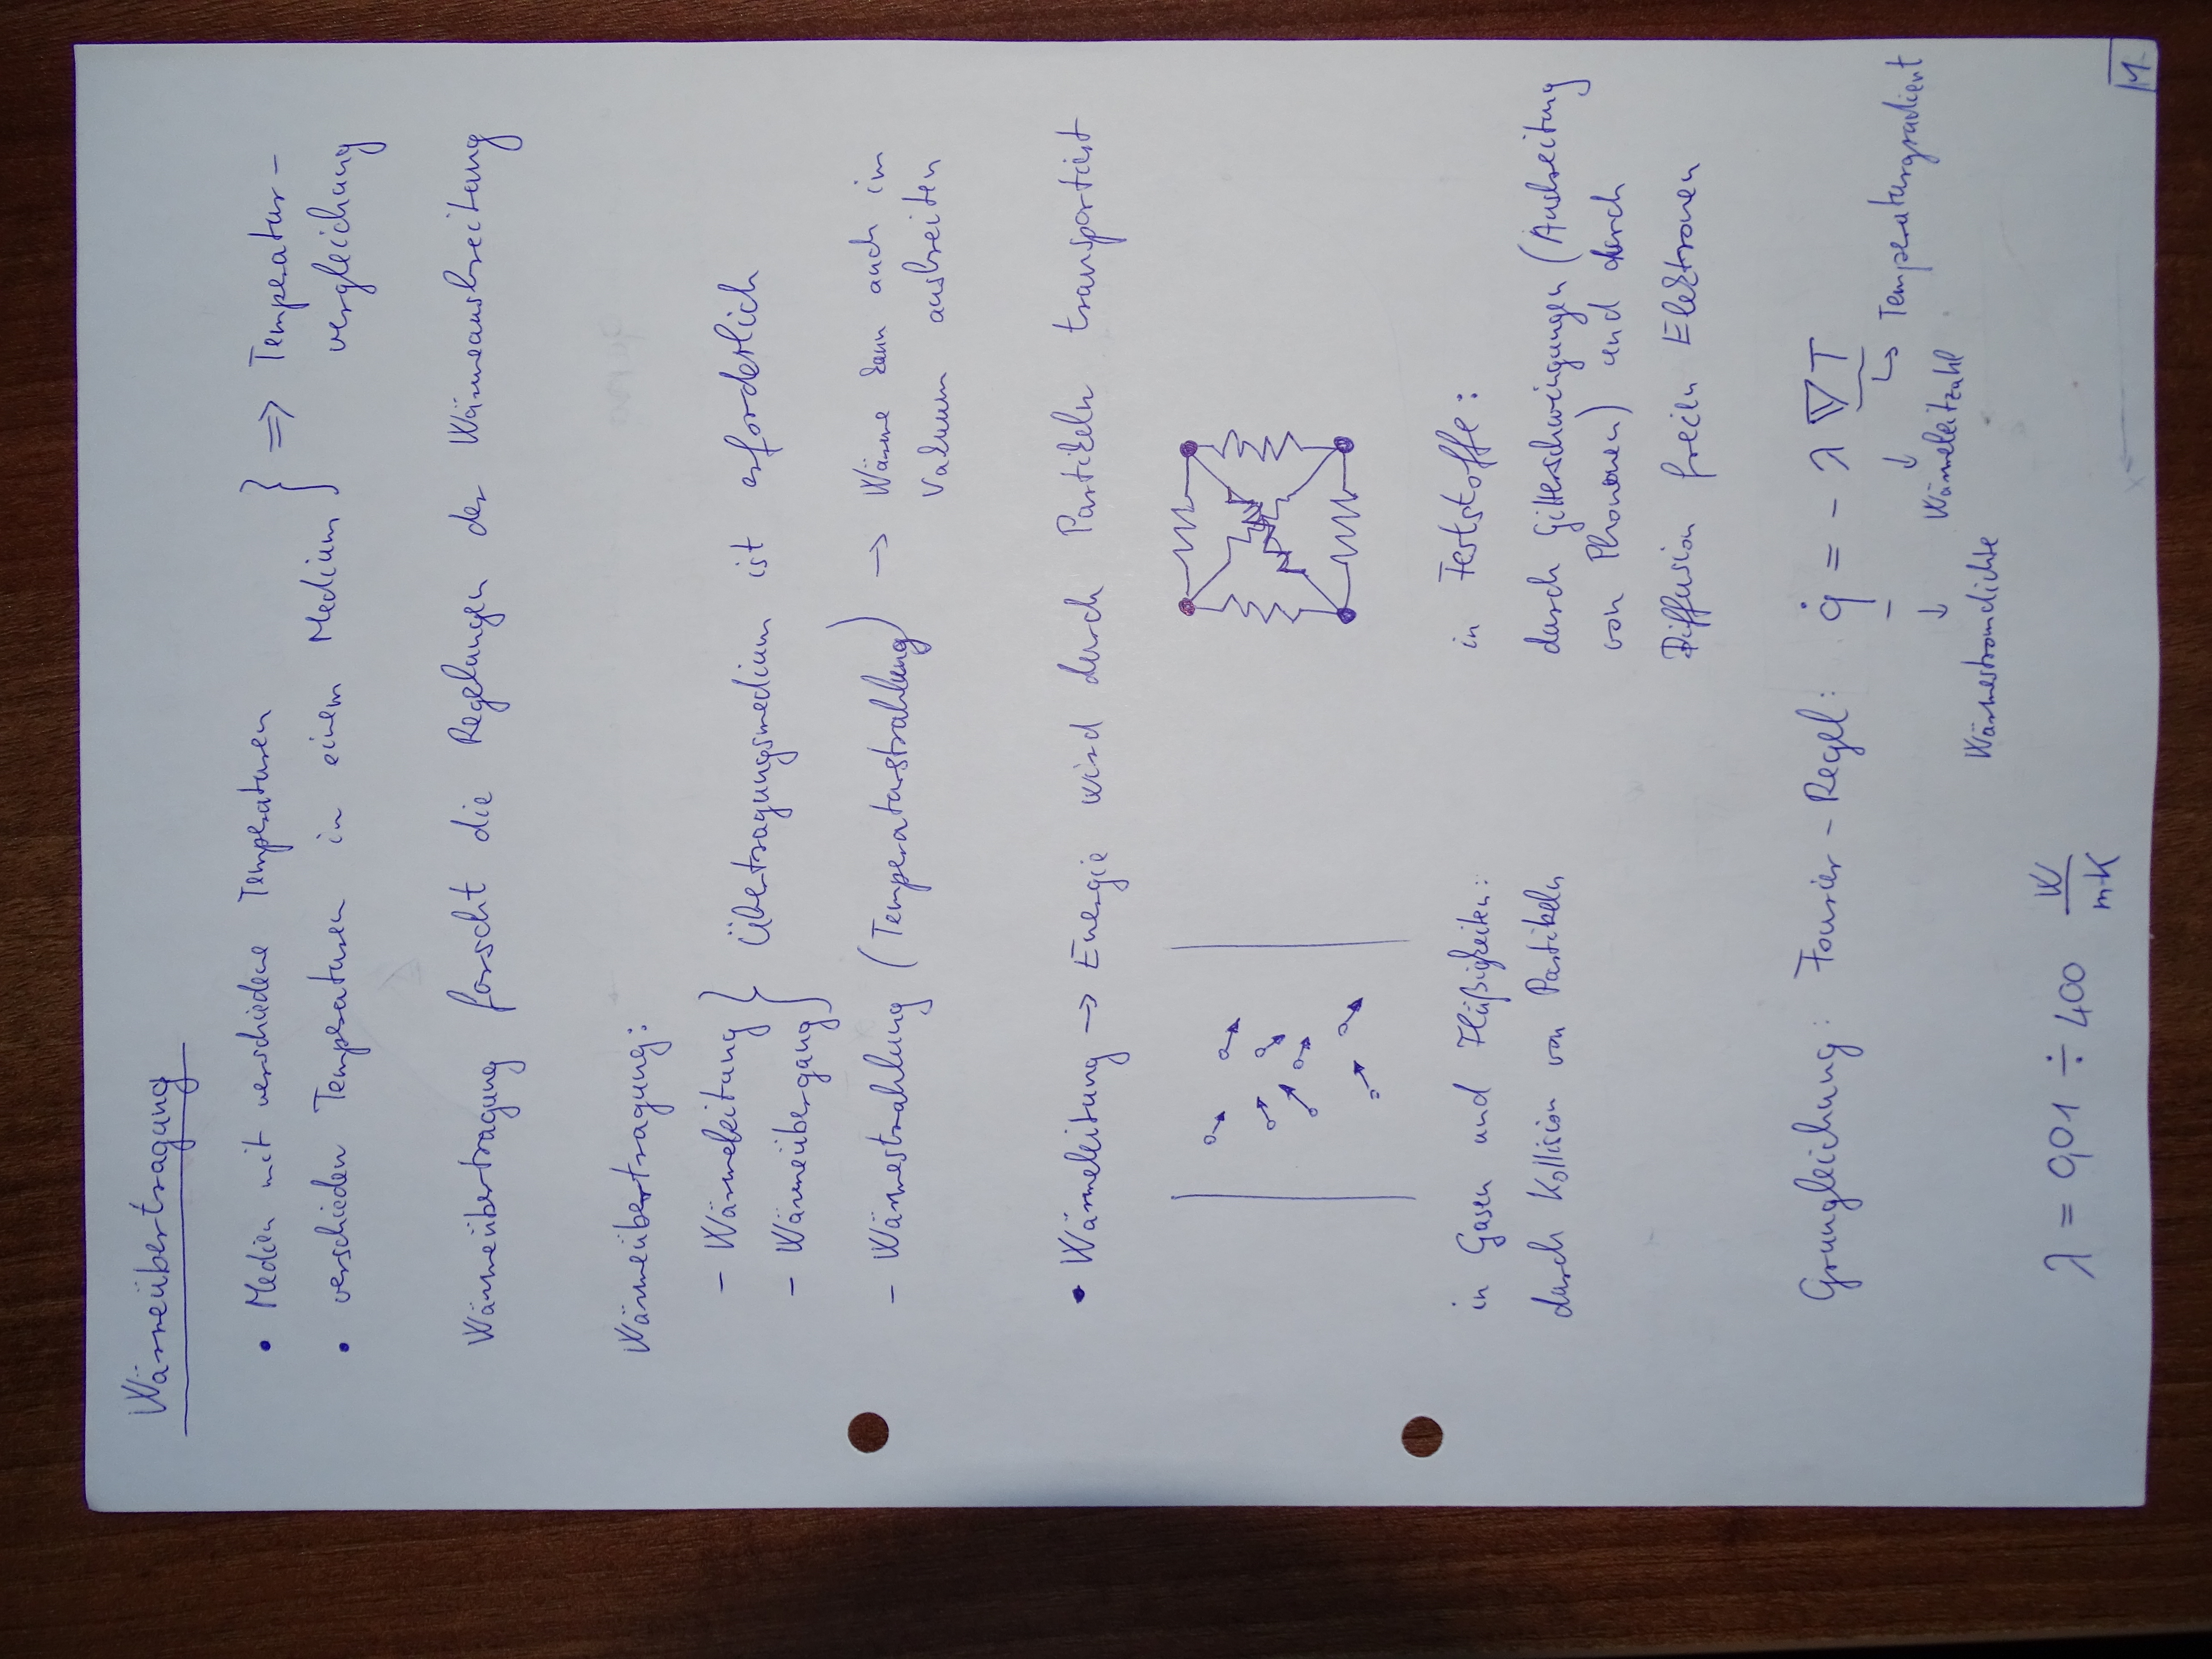 Wärmeübertragung
• Medien mit verschiedene Temperaturen
• verschieden Temperaturen in einem Medium } => Temperatur-
vergleichung
Wärmeübertragung forscht die Regelungen der Wärmeausbreitung
Wärmeübertragung:
- Wärmeleitung
- Wärmeübergang } Übertragungsmedium ist erforderlich
- Wärmestrahlung (Temperaturstrahlung) → Wärme kann auch im
Vakuum ausbreiten
• Wärmeleitung → Energie wird durch Partikeln transportiert
in Gasen und Flüßigkeiten:
durch Kollision von Partikeln
in Feststoffe:
durch Gitterschwingungen (Ausbreitung
von Phononen) und durch
Diffusion freien Elektronen
Grungleichung: Fourier-Regel: q̇ = - λ ∇T
↳ Temperaturgradient
↓ Wärmeleitzahl
↓ Wärmestromdichte
λ = 0,01 ÷ 400 W/mK
1.